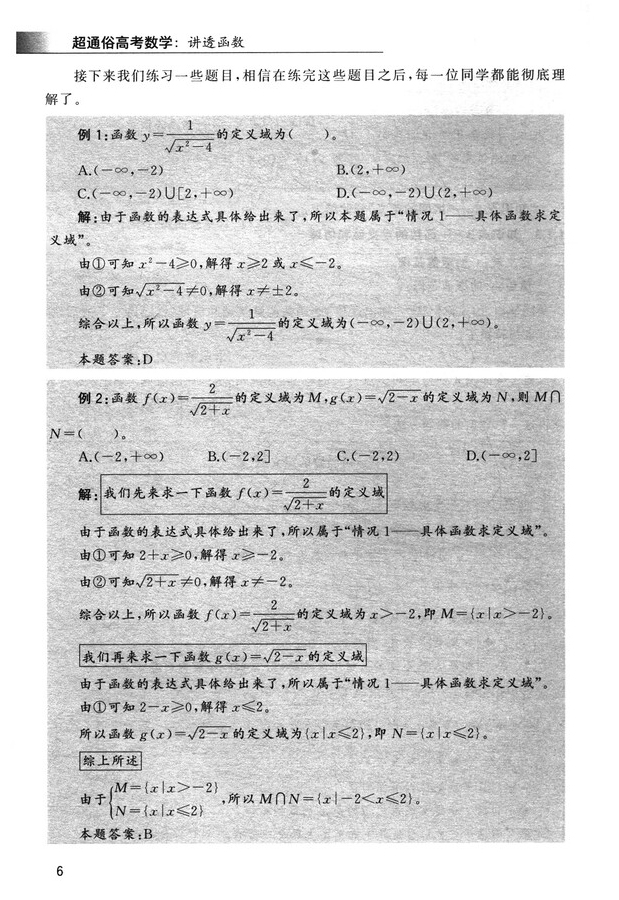 超通俗高考数学：讲透函数
接下来我们练习一些题目，相信在练完这些题目之后，每一位同学都能彻底理
解了。
例 1：函数 y=1/√(x²−4) 的定义域为(　　)。
A.(−∞,−2)　B.(2,+∞)
C.(−∞,−2)∪[2,+∞)　D.(−∞,−2)∪(2,+∞)
解：由于函数的表达式具体给出来了，所以本题属于“情况 1——具体函数求定
义域”。
由①可知 x²−4⩾0，解得 x⩾2 或 x⩽−2。
由②可知√(x²−4)≠0，解得 x≠±2。
综合以上，所以函数 y=1/√(x²−4) 的定义域为(−∞,−2)∪(2,+∞)。
本题答案：D
例 2：函数 f(x)=2/√(2+x) 的定义域为 M，g(x)=√(2−x) 的定义域为 N，则 M∩
N=(　　)。
A.(−2,+∞)　B.(−2,2]　C.(−2,2)　D.(−∞,2]
解：我们先来求一下函数 f(x)=2/√(2+x) 的定义域
由于函数的表达式具体给出来了，所以属于“情况 1——具体函数求定义域”。
由①可知 2+x⩾0，解得 x⩾−2。
由②可知√(2+x)≠0，解得 x≠−2。
综合以上，所以函数 f(x)=2/√(2+x) 的定义域为 x>−2，即 M={x|x>−2}。
我们再来求一下函数 g(x)=√(2−x) 的定义域
由于函数的表达式具体给出来了，所以属于“情况 1——具体函数求定义域”。
由①可知 2−x⩾0，解得 x⩽2。
所以函数 g(x)=√(2−x) 的定义域为{x|x⩽2}，即 N={x|x⩽2}。
综上所述
由于{M={x|x>−2}
N={x|x⩽2}，所以 M∩N={x|−2<x⩽2}。
本题答案：B
6